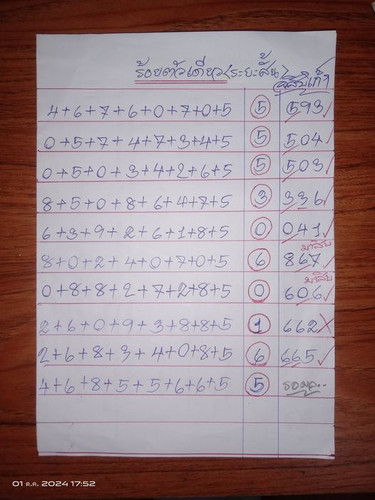 ร้อยตัวเดียว(ระยะสั้น)
4+6+7+6+0+7+0+5 5 593✓
0+5+7+4+7+3+4+5 5 504✓
0+5+0+3+4+2+6+5 5 503✓
8+5+0+8+6+4+7+5 3 336✓
6+3+9+2+6+1+8+5 0 041✓
8+0+2+4+0+7+0+5 6 867✓
0+8+8+2+7+2+8+5 0 606✓
2+6+0+9+3+8+8+5 1 662X
2+6+8+3+4+0+8+5 6 665✓
4+6+8+5+5+6+6+5 5
01 ต.ค. 2024 17:52